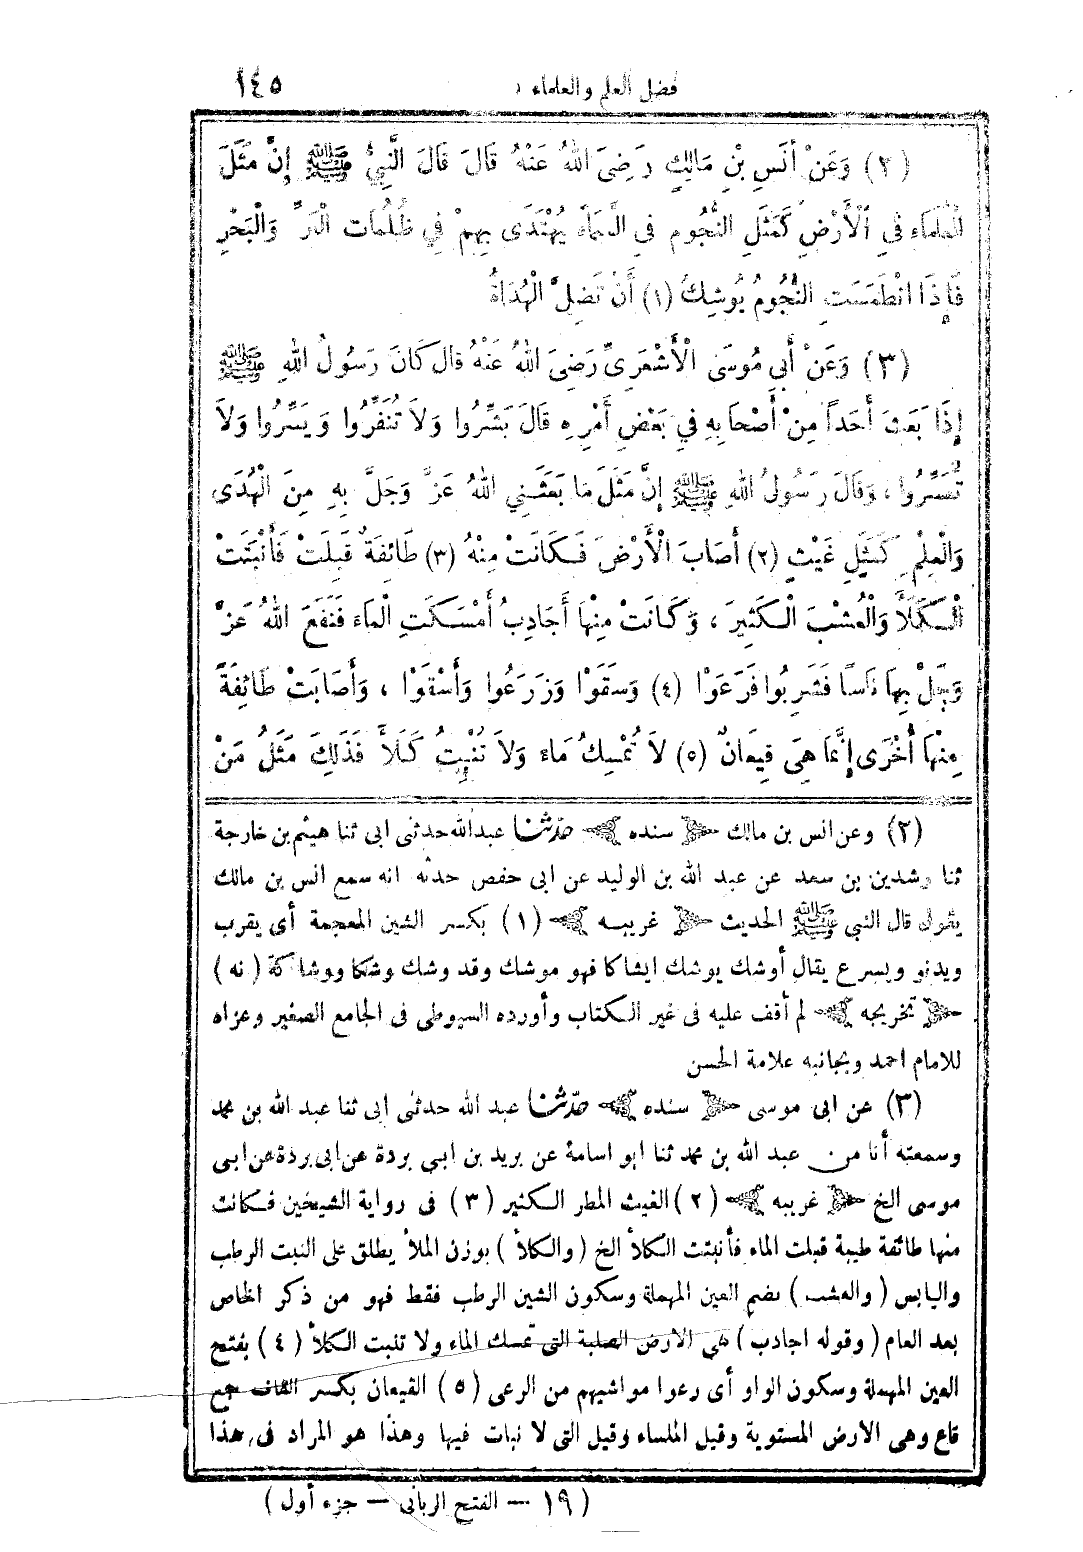 فضل العلم والعلماء ١٤٥
(٢) وَعَنْ أَنَسِ بْنِ مَالِكٍ رَضِىَ اللهُ عَنْهُ قَالَ قَالَ النَّبِيُّ ﷺ إِنَّ مَثَلَ
الْعُلَمَاءِ فِي الْأَرْضِ كَمَثَلِ النُّجُومِ فِي السَّمَاءِ يُهْتَدَى بِهِمْ فِي ظُلُمَاتِ الْبَرِّ وَالْبَحْرِ
فَإِذَا انْطَمَسَتِ النُّجُومُ يُوشِكُ (١) أَنْ تَضِلَّ الْهُدَاةُ
(٣) وَعَنْ أَبِي مُوسَى الْأَشْعَرِىِّ رَضِىَ اللهُ عَنْهُ قَالَ كَانَ رَسُولُ اللهِ ﷺ
إِذَا بَعَثَ أَحَداً مِنْ أَصْحَابِهِ فِي بَعْضِ أَمْرِهِ قَالَ بَشِّرُوا وَلاَ تُنَفِّرُوا وَيَسِّرُوا وَلاَ
تُعَسِّرُوا ، وَقَالَ رَسُولُ اللهِ ﷺ إِنَّ مَثَلَ مَا بَعَثَنِي اللهُ عَزَّ وَجَلَّ بِهِ مِنَ الْهُدَى
وَالْعِلْمِ كَمَثَلِ غَيْثٍ (٢) أَصَابَ الْأَرْضَ فَكَانَتْ مِنْهُ (٣) طَائِفَةٌ قَبِلَتْ فَأَنْبَتَتْ
الْكَلَأَ وَالْعُشْبَ الْكَثِيرَ ، وَكَانَتْ مِنْهَا أَجَادِبُ أَمْسَكَتِ الْمَاءَ فَنَفَعَ اللهُ عَزَّ
وَجَلَّ بِهَا نَاسًا فَشَرِبُوا فَرَعَوْا (٤) وَسَقَوْا وَزَرَعُوا وَأَسْقَوْا ، وَأَصَابَتْ طَائِفَةً
مِنْهَا أُخْرَى إِنَّمَا هِىَ قِيعَانٌ (٥) لاَ تُمْسِكُ مَاءً وَلاَ تُنْبِتُ كَلَأً فَذَلِكَ مَثَلُ مَنْ
(٢) وعن انس بن مالك ﴿ سنده ﴾ حدثنا عبد الله حدثنى ابى ثنا هيثم بن خارجة
ثنا رشدين بن سعد عن عبد الله بن الوليد عن ابى حفص حدثه انه سمع انس بن مالك
يقول قال النبي ﷺ الحديث ﴿ غريبه ﴾ (١) بكسر الشين المعجمة أى يقرب
ويدنو ويسرع يقال أوشك يوشك ايشاكا فهو موشك وقد وشك وشكا ووشاكة (نه)
﴿ تخريجه ﴾ لم أقف عليه فى غير الكتاب وأورده السيوطى فى الجامع الصغير وعزاه
للامام احمد وبجانبه علامة الحسن
(٣) عن ابى موسى ﴿ سنده ﴾ حدثنا عبد الله حدثنى ابى ثنا عبد الله بن محمد
وسمعته أنا من عبد الله بن محمد ثنا ابو اسامة عن بريد بن ابى بردة عن ابى بردة عن ابى
موسى الخ ﴿ غريبه ﴾ (٢) الغيث المطر الكثير (٣) فى رواية الشيخين فكانت
منها طائفة طيبة قبلت الماء فأنبتت الكلأ الخ (والكلأ) بوزن الملأ يطلق على النبت الرطب
واليابس (والعشب) بضم العين المهملة وسكون الشين الرطب فقط فهو من ذكر الخاص
بعد العام (وقوله اجادب) هى الارض الصلبة التى تمسك الماء ولا تنبت الكلأ (٤) بفتح
العين المهملة وسكون الواو أى رعوا مواشيهم من الرعى (٥) القيعان بكسر القاف جمع
قاع وهى الارض المستوية وقيل الملساء وقيل التى لا نبات فيها وهذا هو المراد فى هذا
(١٩ — الفتح الربانى — جزء أول)